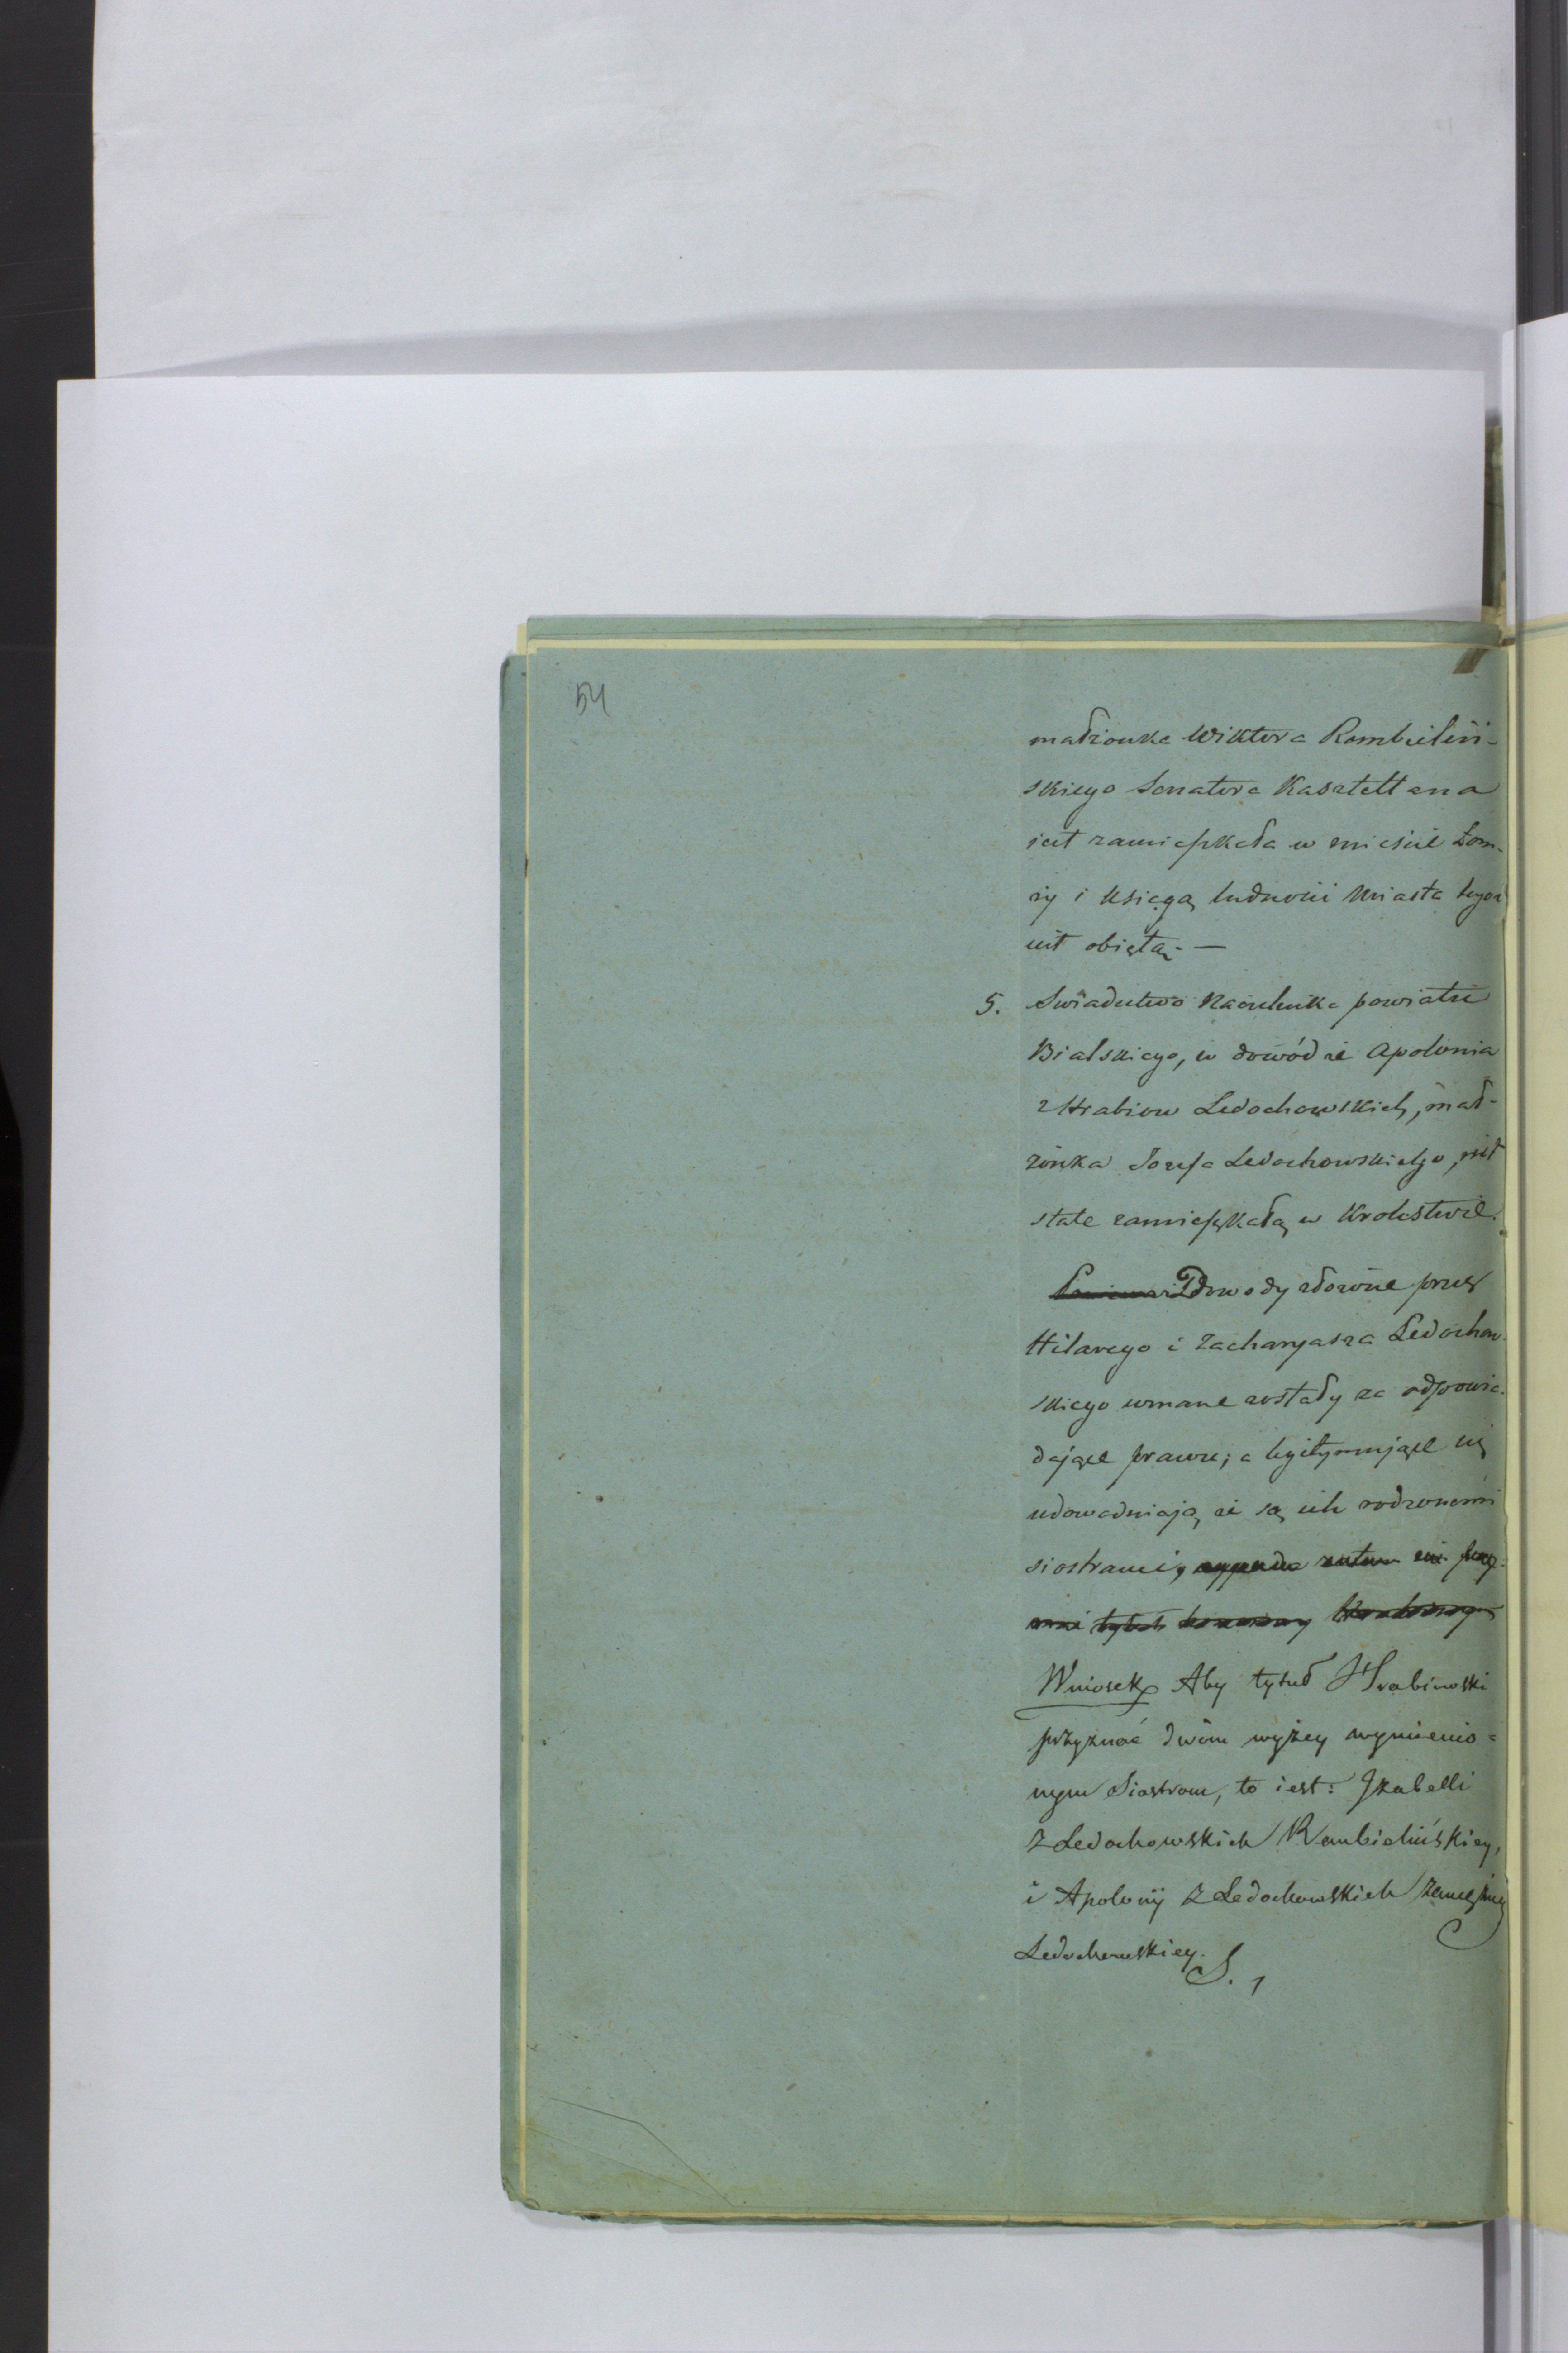 54
małżonka Wiktora Rembieliń-
skiego Senatora Kasztellana
jest zamieszkała w mieście Łom-
ży i Księgą ludności Miasta tegoż
jest objętą. —
5. Świadectwo Naczelnika powiatu
Bialskiego, w dowód że Apolonia
z Hrabiów Ledochowskich, mał-
żonka Józefa Ledochowskiego, jest
stale zamieszkałą w Królestwie.
Dowody złożone przez
Hilarego i Zacharyasza Ledochow-
skiego uznane zostały za odpowia-
dające prawu; a legitymujące się
udowadniają że są ich rodzonemi
siostrami, wypada zatem im przy-
znać tytuł honorowy Hrabiowski
Wniosek Aby tytuł Hrabiowski
przyznać dwóm wyżey wymienio-
nym Siostrom, to iest: Izabelli
z Ledochowskich Rembielińskiey,
i Apolonij z Ledochowskich zamężney
Ledochowskiey.
S. 1